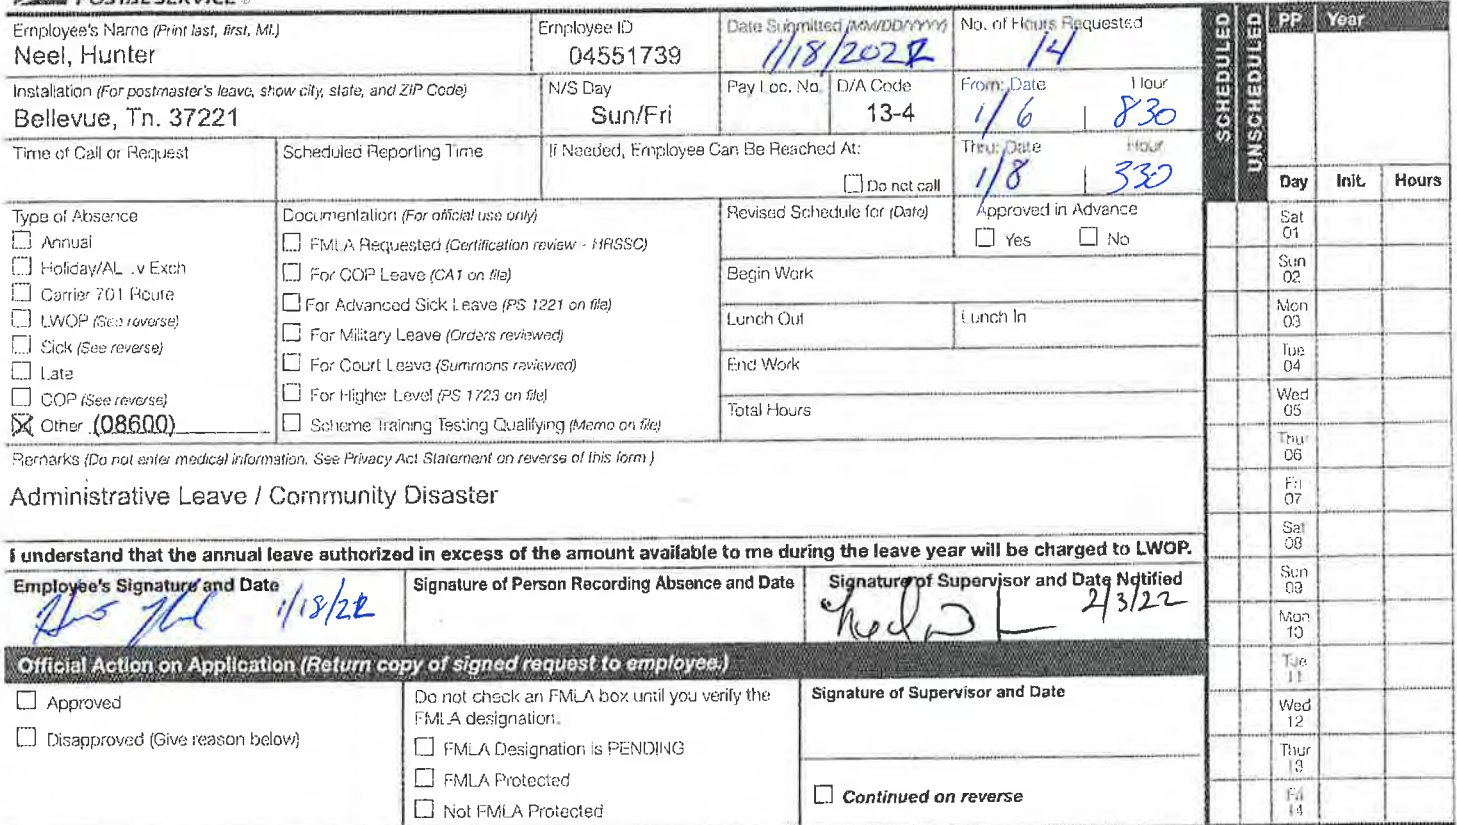 POSTAL SERVICE ®
Employee's Name (Print last, first, MI.)
Neel, Hunter
Employee ID
04551739
Date Submitted (MM/DD/YYYY)
1/18/2022
No. of Hours Requested
14
Installation (For postmaster's leave, show city, state, and ZIP Code)
Bellevue, Tn. 37221
N/S Day
Sun/Fri
Pay Loc. No.
D/A Code
13-4
From: Date Hour
1/6 830
Time of Call or Request
Scheduled Reporting Time
If Needed, Employee Can Be Reached At:
Do not call
Thru: Date Hour
1/8 330
Type of Absence
Annual
Holiday/AL Lv Exch
Carrier 701 Route
LWOP (See reverse)
Sick (See reverse)
Late
COP (See reverse)
Other (08600)
Documentation (For official use only)
FMLA Requested (Certification review - HRSSC)
For COP Leave (CA1 on file)
For Advanced Sick Leave (PS 1221 on file)
For Military Leave (Orders reviewed)
For Court Leave (Summons reviewed)
For Higher Level (PS 1723 on file)
Scheme Training Testing Qualifying (Memo on file)
Revised Schedule for (Date)
Approved in Advance
Yes No
Begin Work
Lunch Out
Lunch In
End Work
Total Hours
Remarks (Do not enter medical information. See Privacy Act Statement on reverse of this form)
Administrative Leave / Community Disaster
I understand that the annual leave authorized in excess of the amount available to me during the leave year will be charged to LWOP.
Employee's Signature and Date
1/18/22
Signature of Person Recording Absence and Date
Signature of Supervisor and Date Notified
2/3/22
Official Action on Application (Return copy of signed request to employee.)
Approved
Disapproved (Give reason below)
Do not check an FMLA box until you verify the
FMLA designation.
FMLA Designation is PENDING
FMLA Protected
Not FMLA Protected
Signature of Supervisor and Date
Continued on reverse
SCHEDULED
UNSCHEDULED
PP Year
Day Init. Hours
Sat
01
Sun
02
Mon
03
Tue
04
Wed
05
Thu
06
Fri
07
Sat
08
Sun
09
Mon
10
Tue
11
Wed
12
Thur
13
Fri
14